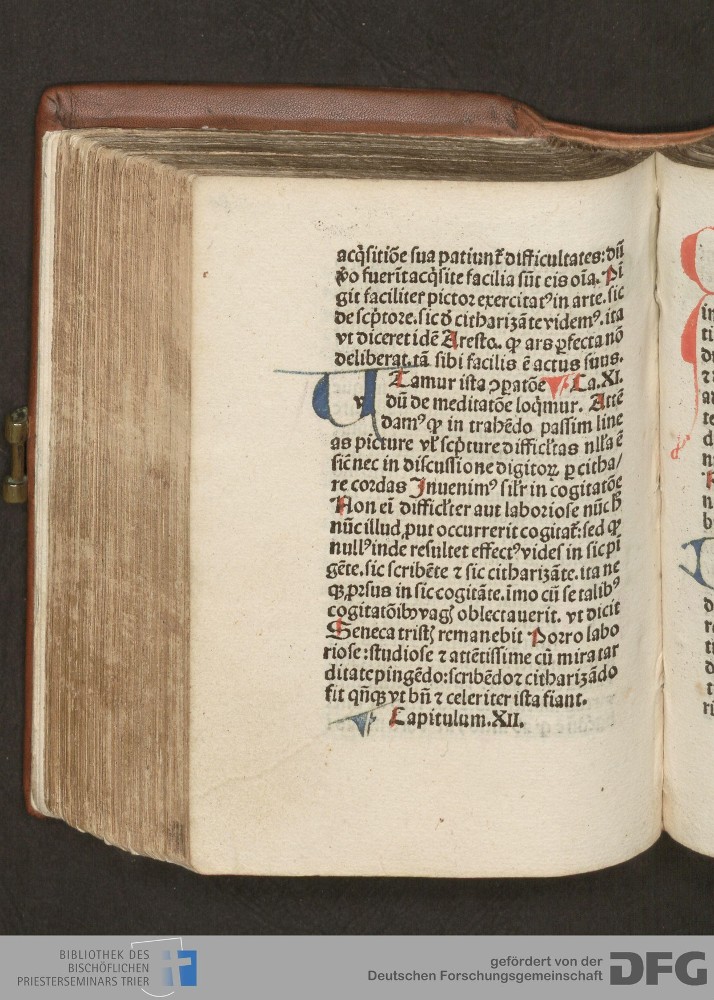 acq̃sitiõe sua patiunt᷑ difficultates: dũ
ṽo fuerĩt acq̃site facilia sũt eis oĩa. Pĩ
git faciliter pictor exercitatꝰ in arte. sic
de scp̃tore. sic ð citharizãte videmꝰ. ita
vt diceret idẽ Aresto. ꝙ ars ꝑfecta nõ
deliberat. tã sibi facilis ẽ actus suus.
Lamur ista ꝯꝑatõe Ca. XI.
U dũ de meditatõe loq̃mur. Attẽ
damꝰ ꝙ in trahẽdo passim line
as picture vl̕ scp̃ture difficl̕tas nll̕a ẽ
sic̃ nec in discussione digitoꝝ ꝑ citha/
re cordas Inuenimꝰ sil̕r in cogitatõe
Non eĩ difficl̕ter aut laboriose nũc h̃
nũc illud, put occurrerit cogitat᷑: sed ꝙ
nullꝰ inde resultet effectꝰ vides in sic pĩ
gẽte. sic scribẽte ⁊ sic citharizãte. ita ne
qꝫ, prsus in sic cogitãte. ĩmo cũ se talibꝰ
cogitatõibꝰ vagꝭ oblectauerit. vt dicit
Seneca tristꝭ remanebit Porro labo
riose: studiose ⁊ attẽtissime cũ mira tar
ditate pingẽdo: scribẽdo ⁊ citharizãdo
fit qñqꝫ vt bñ ⁊ celeriter ista fiant.
Capitulum. XII.
BIBLIOTHEK DES
BISCHÖFLICHEN
PRIESTERSEMINARS TRIER
gefördert von der
Deutschen Forschungsgemeinschaft DFG